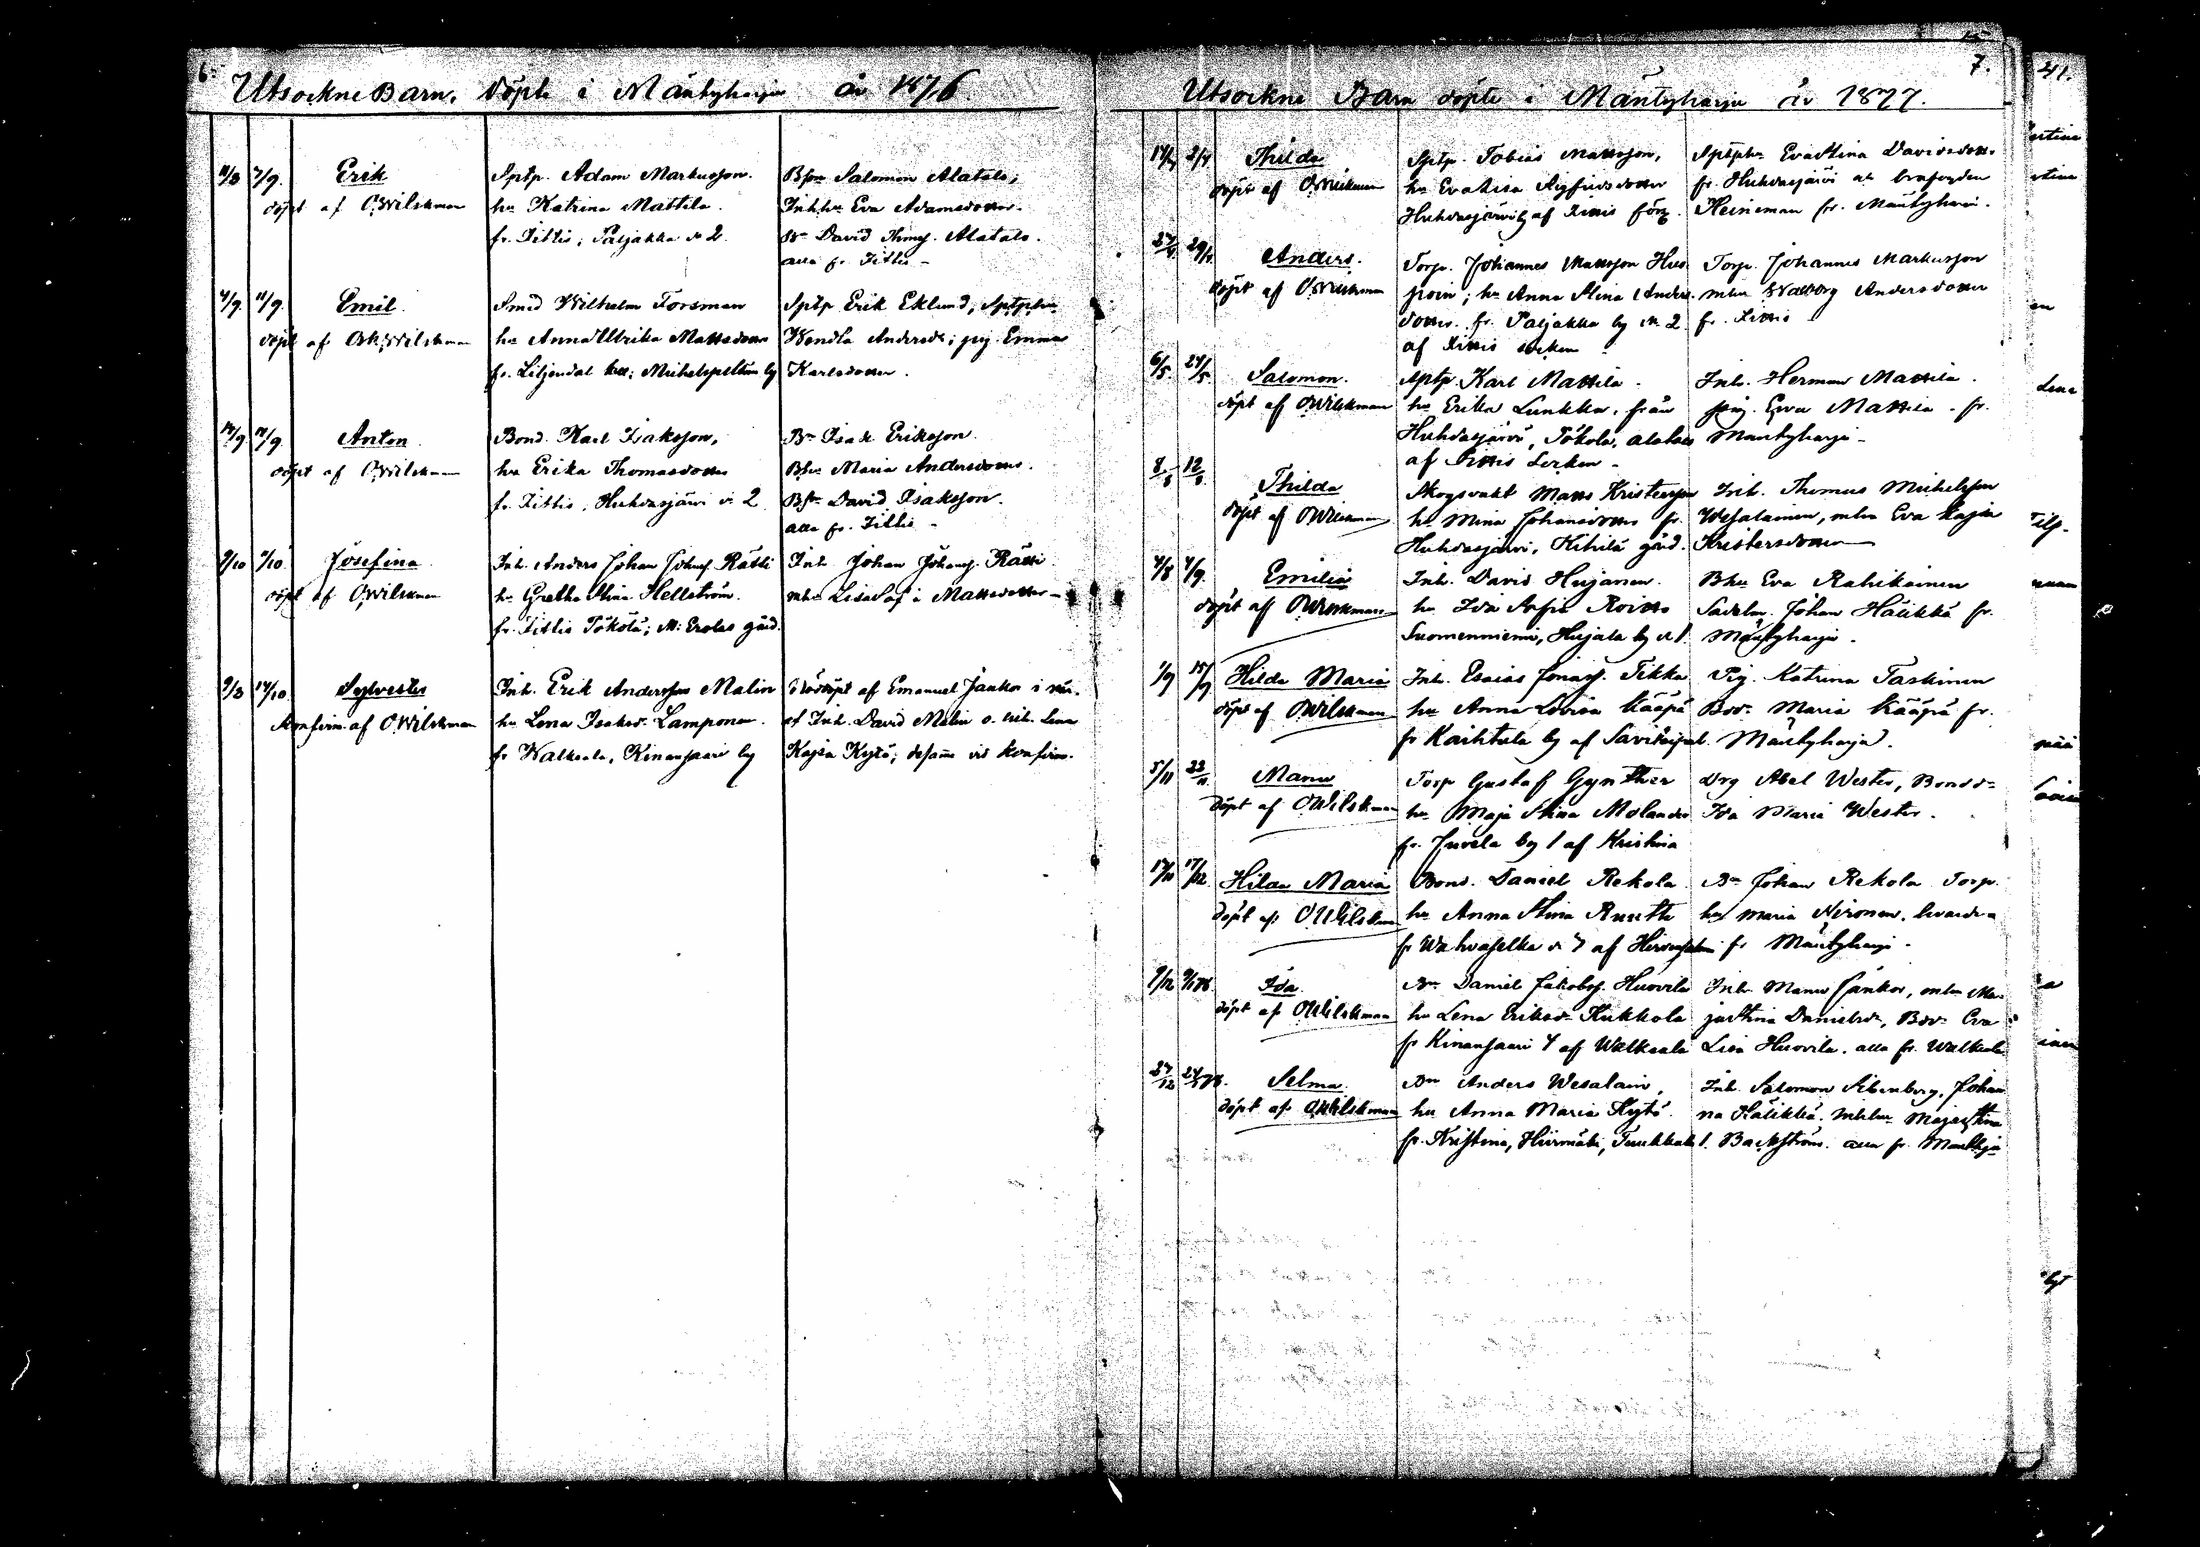 6.
Utsockne Barn, döpte i Mäntyharju år 1876.
11/8 7/9. Erik
döpt af OWilskman
Sptp. Adam Markusson.
hu Katrina Mattila.
fr. Jittis; Paljakka № 2.
Bson Salomon Alatalo;
Inh.hu Eva Adamsdotter.
David Thomss. Alatalo.
alla fr. Jittis -
4/9. 11/9. Emil.
döpt af OWilskman
Smed Wilhelm Forsman
hu Anna Ulrika Mattsdotter
fr. Liljendal kell; Michelspeltom by
Sptp Erik Eklund; Sptphu
Wendla Andersdr; pig. Emma
Karlsdotter.
14/9 17/9. Anton.
döpt af OWilskman
Bond. Karl Isaksson,
hu Erika Thomasdotter
fr. Jittis, Huhdasjärvi № 2
Bn Isak Eriksson.
Bhu Maria Andersdotter.
Bson David Isaksson.
alla fr. Jittis -
2/10 7/10. Josefina
döpt af OWilskman
Inh. Anders Johan Johanss. Rätti
hu Gretha Stina Hellström.
fr. Jittis Tökölä; M: Erolas gård.
Inh. Johan Johanss. Rätti.
mhu Lisa Sofia Mattsdotter -
9/3 14/10. Sylvester
konfirm. af OWilskman
Inh. Erik Andersson Malin
hu Lena Isaksdr Lamponen.
fr Walkeala, Kinansaari by
Nöddöpt af Emanuel Jankor i när.
af Inh. David Malin o. Lena
Kajsa Kytö; desamme vid konfirm.
7.
Utsockne Barn döpte i Mäntyharju år 1877.
Thilda
döpt af OWilskman
Sptp. Tobias Mattsson,
hu Eva Lisa Sigfridsdotter
Huhdasjärvi by af Jittis förs.
Sptphu Eva Stina Davidsdotter
fr. Huhdasjärvi
Heineman fr. Mäntyharju.
Anders.
döpt af OWilskman
Torp. Johannes Mattsson
hu Anna Stina Anders-
dotter. fr. Paljakka by № 2
af Jittis socken
Torp. Johannes Markusson
mhu Walborg Andersdotter
fr. Jittis
6/5. 24/5 Salomon.
döpt af OWilskman
Sptp. Karl Mattila.
hu Erika Lunkka, från
Huhdasjärvi, Tökola, Alatalo
af Jittis Socken -
Inh. Herman Mattila.
pig. Eva Mattila. fr.
Mäntyharju -
Thilda
döpt af OWilskman
Skogsvakt Matts Kristersson
hu Mina Johansdotter fr.
Huhdasjärvi, Kitulä gård.
Inh. Thomas Michelsson
Wesalainen, mhu Eva Kajsa
Kristersdotter
4/8 4/9. Emilia
döpt af OWilskman
Inh. David Hujanen.
hu Ida Sofia Roitto
Suomenniemi, Hujala by № 1.
Bhu Eva Rahikainen
Johan Häikkä fr.
Mäntyharju.
1/9 15/9 Hilda Maria
döpt af OWilskman
Inh. Esaias Jonass. Tikka
hu Anna Lovisa Kääpä
fr Kaihtula by af Savitaipal.
Pig. Katrina Taskinen
Bdr. Maria Kääpä fr.
Mäntyharju.
5/11 22/11. Manu
döpt af OWilskman
Torp Gustaf Gynther
hu Maja Stina Molander
fr. Juvola by 1 af Kristina
Drg Abel Wester, Bondd-
Ida Maria Wester.
17/12. Hilda Maria
döpt af OWilskman
Bond. Daniel Rekola
hu Anna Stina Ruuth
fr Wahvaselka № 7 af Hirvensalmi
Bn Johan Rekola Torp.
hu Maria Nironen.
fr Mäntyharju.
Ida.
döpt af OWilskman
Bn Daniel Jakobss. Huovila
hu Lena Eriksdr Kukkola
fr Kinansaari 4 af Walkeala
Inh. Manu Jankor, mhu Ma-
ja Stina Danielsdr, Bdr. Eva
Lisa Huovila. alla fr. Walkeala
Selma.
döpt af OWilskman
Bn Anders Wesalain,
hu Anna Maria Kytö.
fr. Kristina, Hiirmäki, Tuukkala 1.
Inh. Salomon Silenberg, Johan
na Häikkä. mhu Maja Stina
Backström. alla fr. Mäntyhju
41.